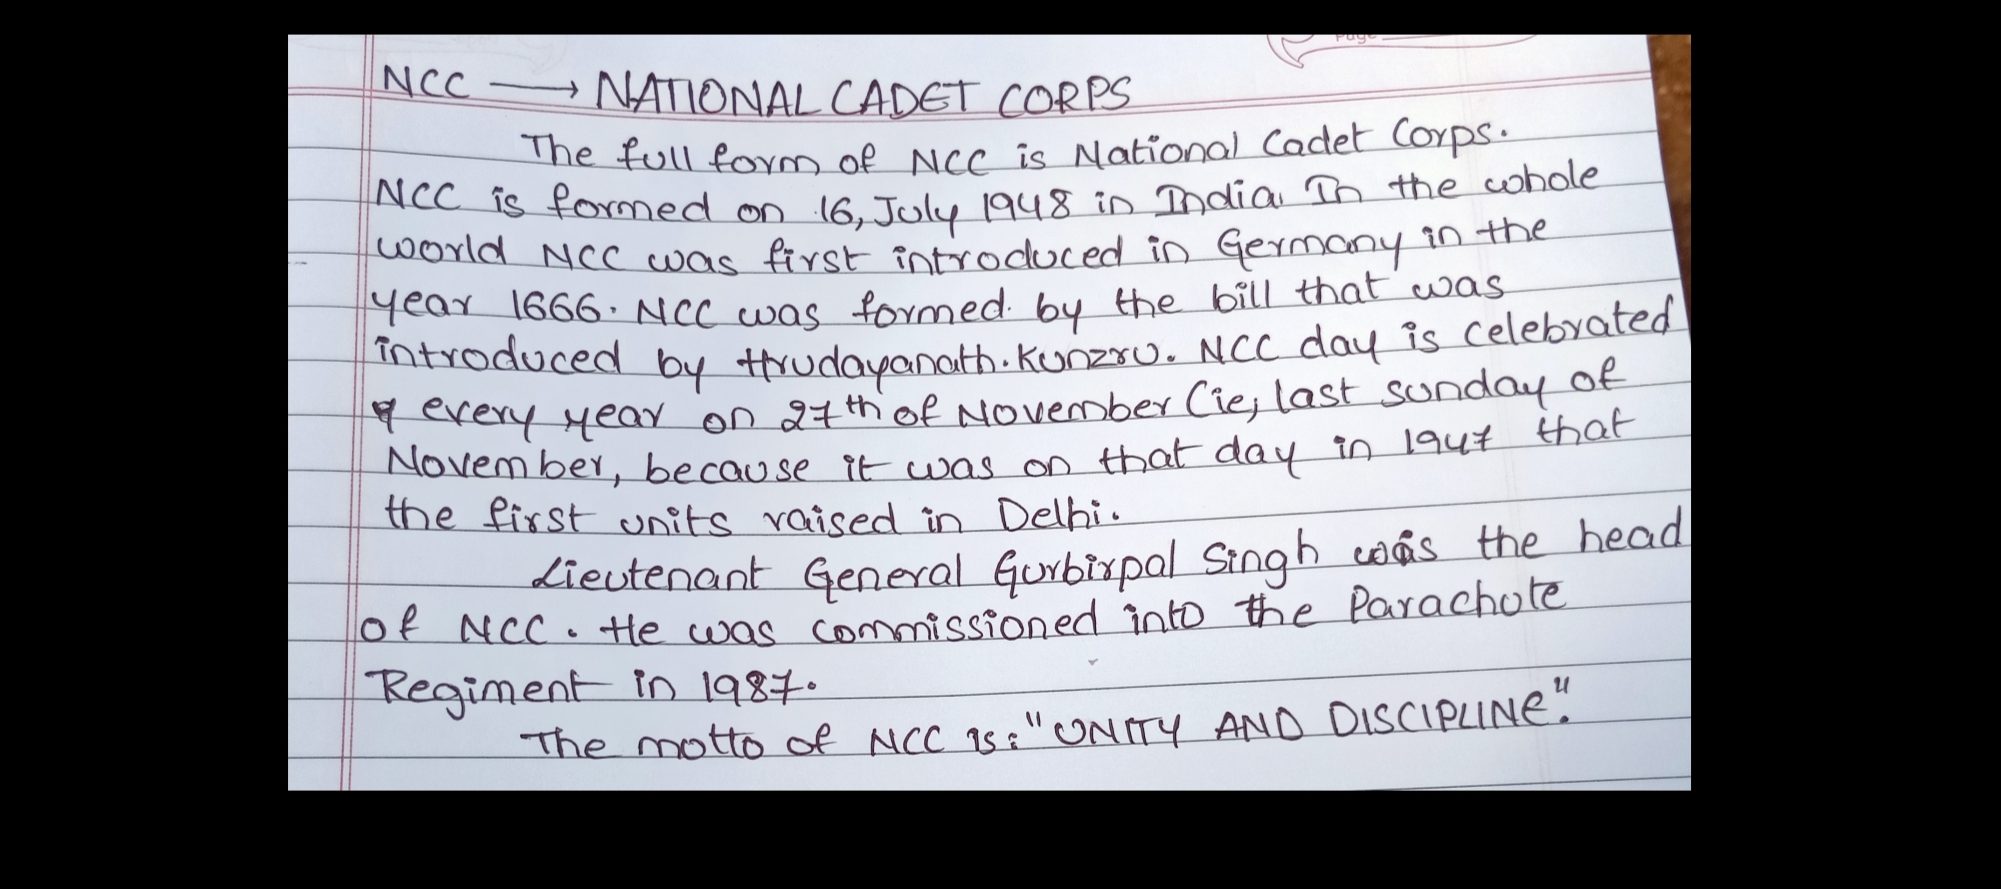 Page
NCC → NATIONAL CADET CORPS
The full form of NCC is National Cadet Corps.
NCC is formed on 16, July 1948 in India. In the whole
world NCC was first introduced in Germany in the
year 1666. NCC was formed by the bill that was
introduced by Hrudayanath. Kunzru. NCC day is celebrated
every year on 27th of November (ie, last sunday of
November, because it was on that day in 1947 that
the first units raised in Delhi.
Lieutenant General Gurbirpal Singh was the head
of NCC. He was commissioned into the Parachute
Regiment in 1987.
The motto of NCC is: "UNITY AND DISCIPLINE".